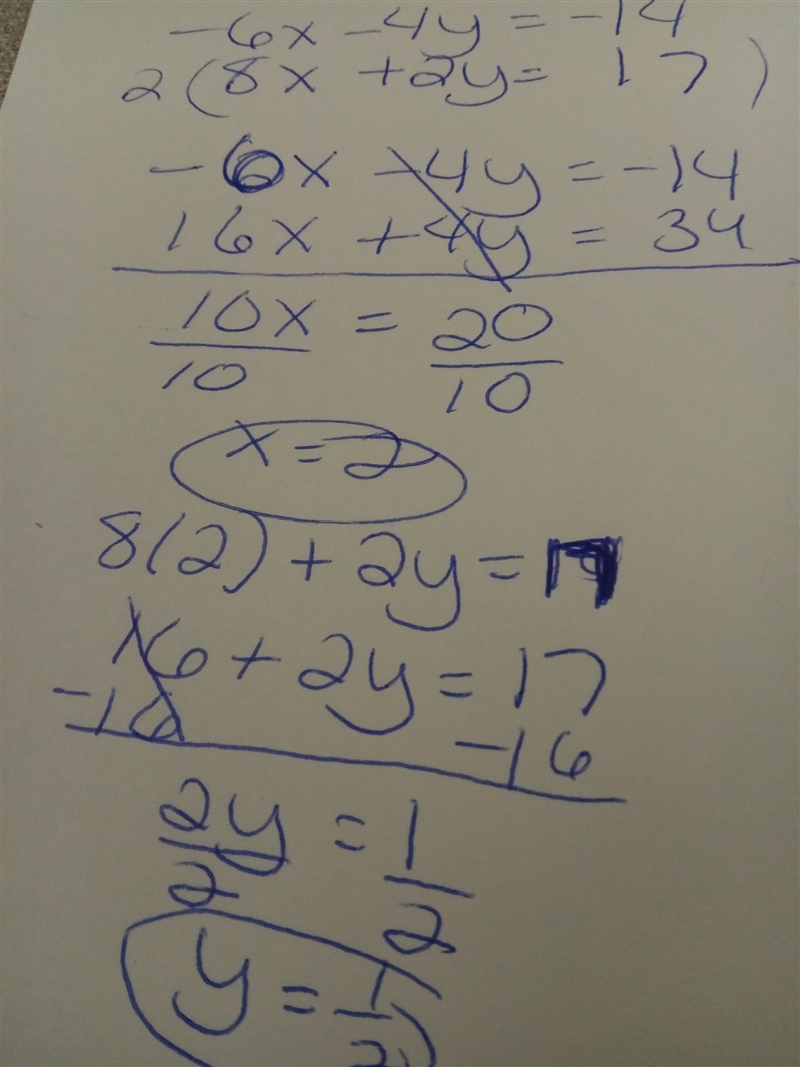 -6x -4y = -14
2(8x +2y = 17)
-6x -4y = -14
16x +4y = 34
10x = 20
10 10
x = 2
8(2) + 2y = 17
16 + 2y = 17
-16 -16
2y = 1
2 2
y = 1/2